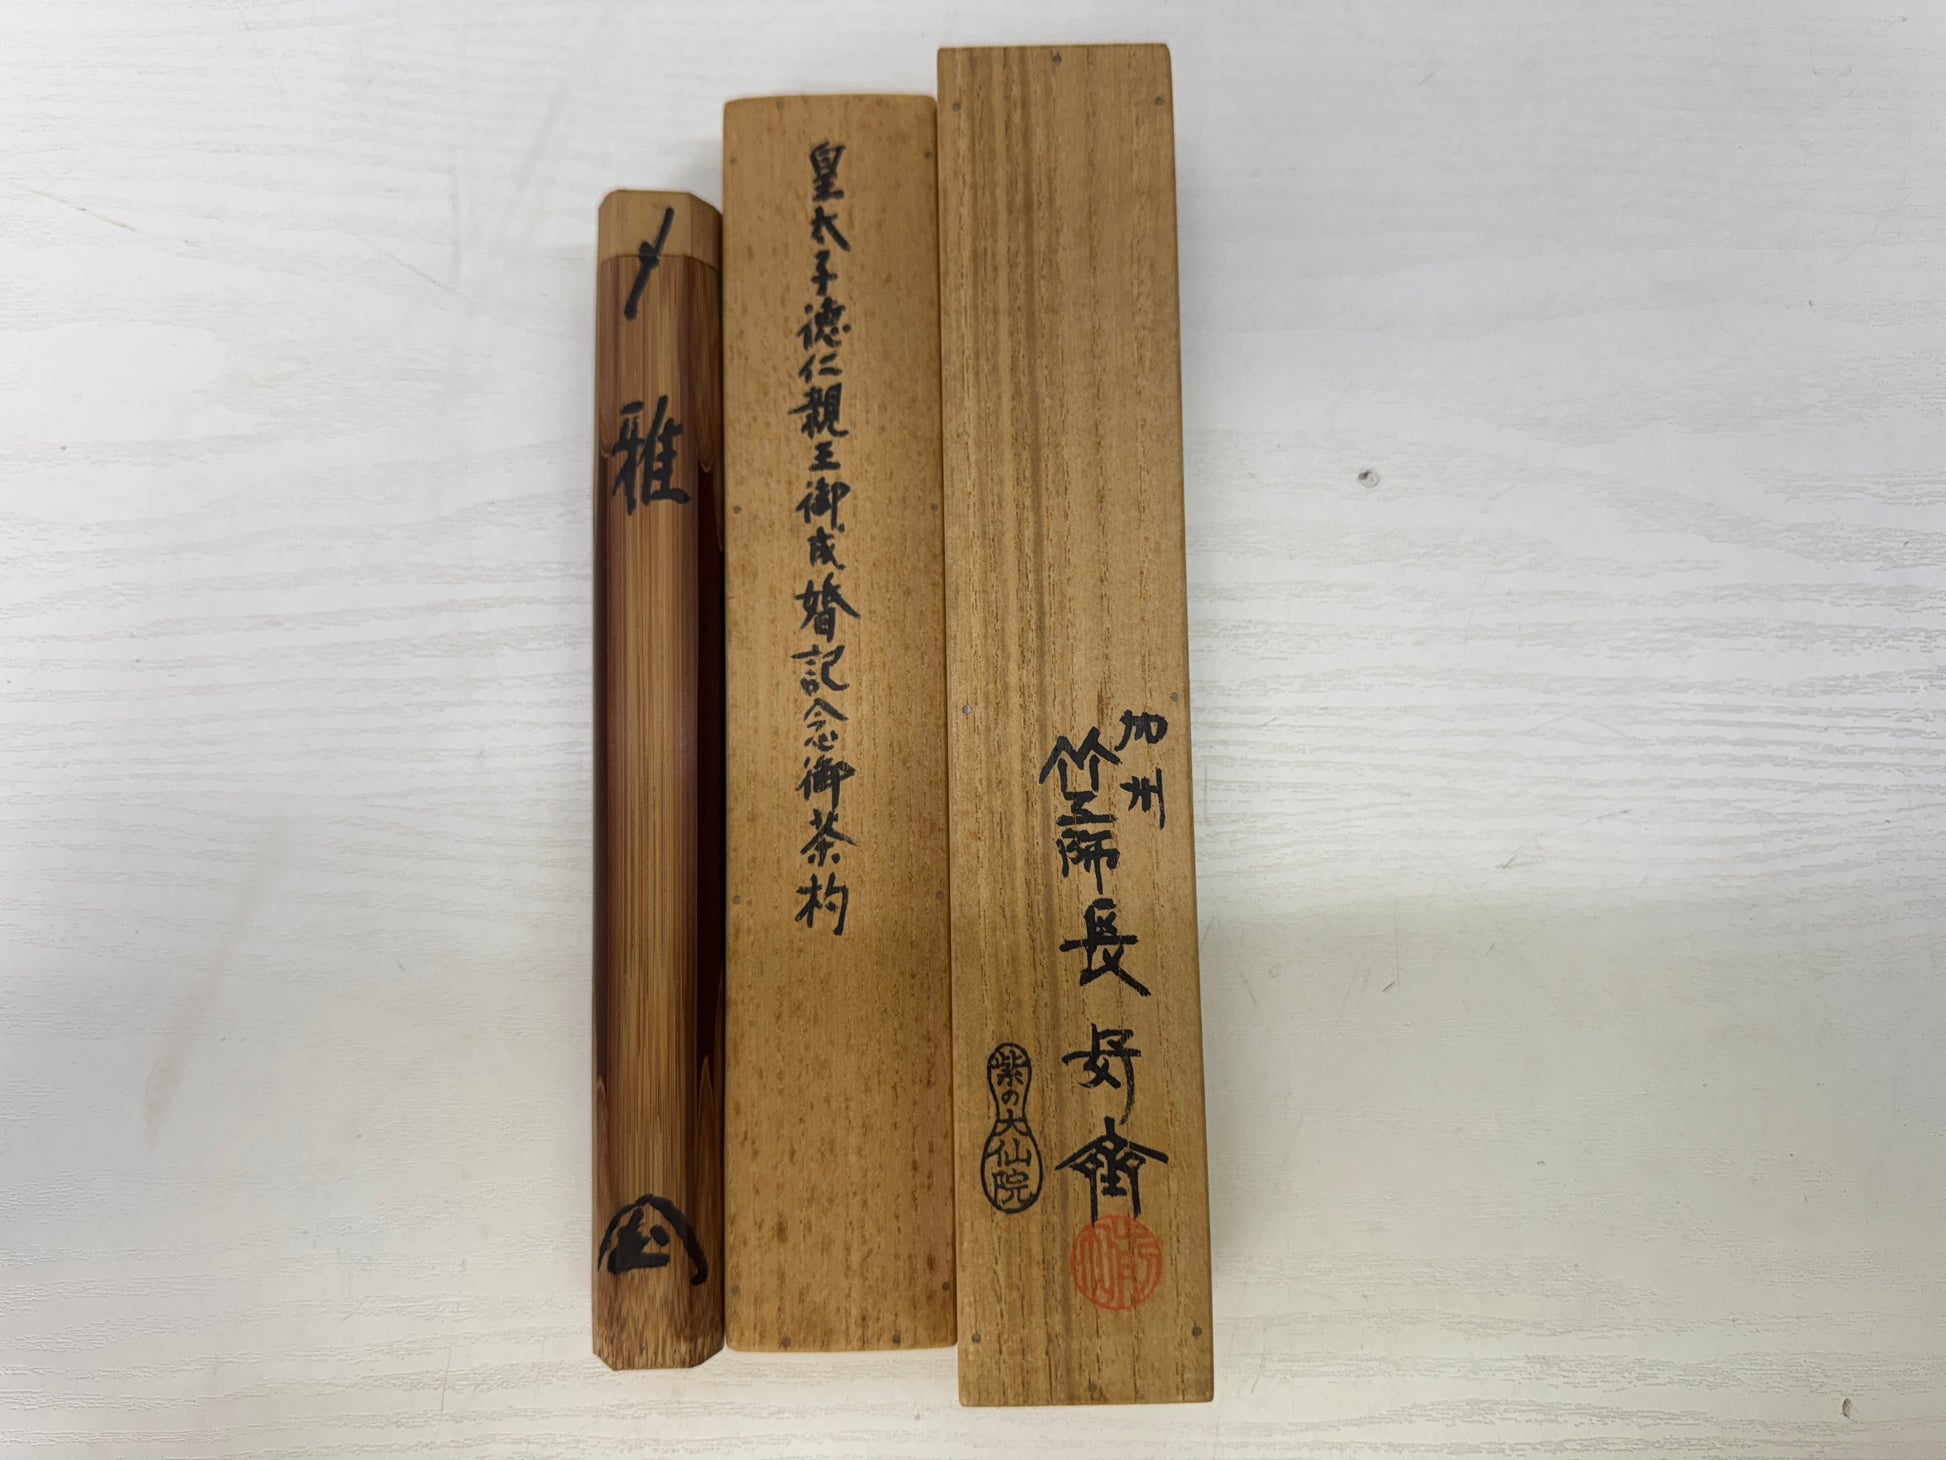 加州
竹工師 長好齋
紫の大仙院
皇太子徳仁親王御成婚記念御茶杓
雅